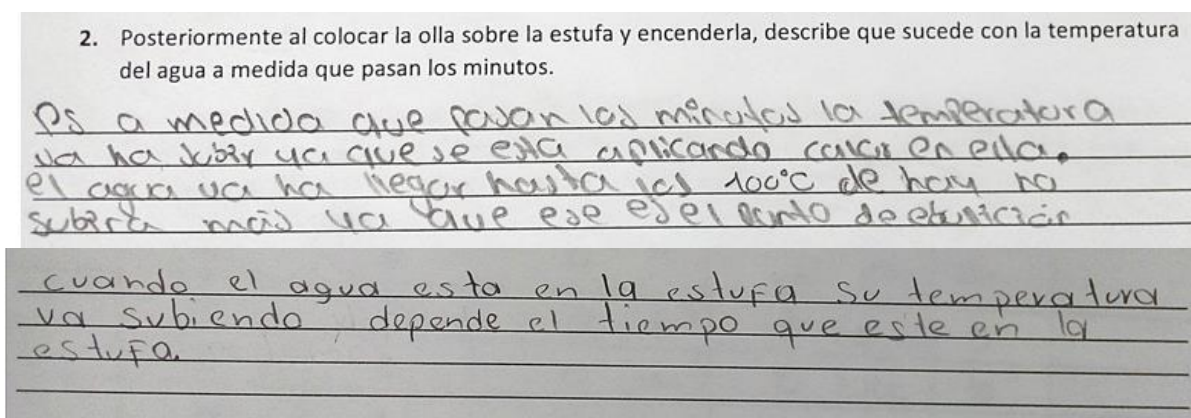 2. Posteriormente al colocar la olla sobre la estufa y encenderla, describe que sucede con la temperatura
del agua a medida que pasan los minutos.
Ps a medida que pasan los minutos la temperatura
va ha subir ya que se esta aplicando calor en ella.
el agua va ha llegar hasta los 100°C de hay no
subira más ya que ese es el punto de ebullición
cuando el agua esta en la estufa su temperatura
va subiendo, depende el tiempo que este en la
estufa.